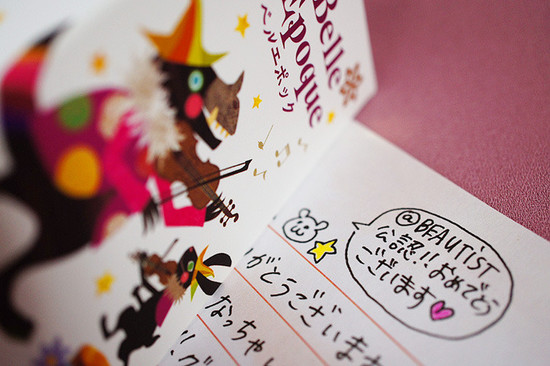 Belle
Epoque
ベルエポック
@BEAUTiST
公認!!おめでとう
ございます
がとうございま
なっちゃ